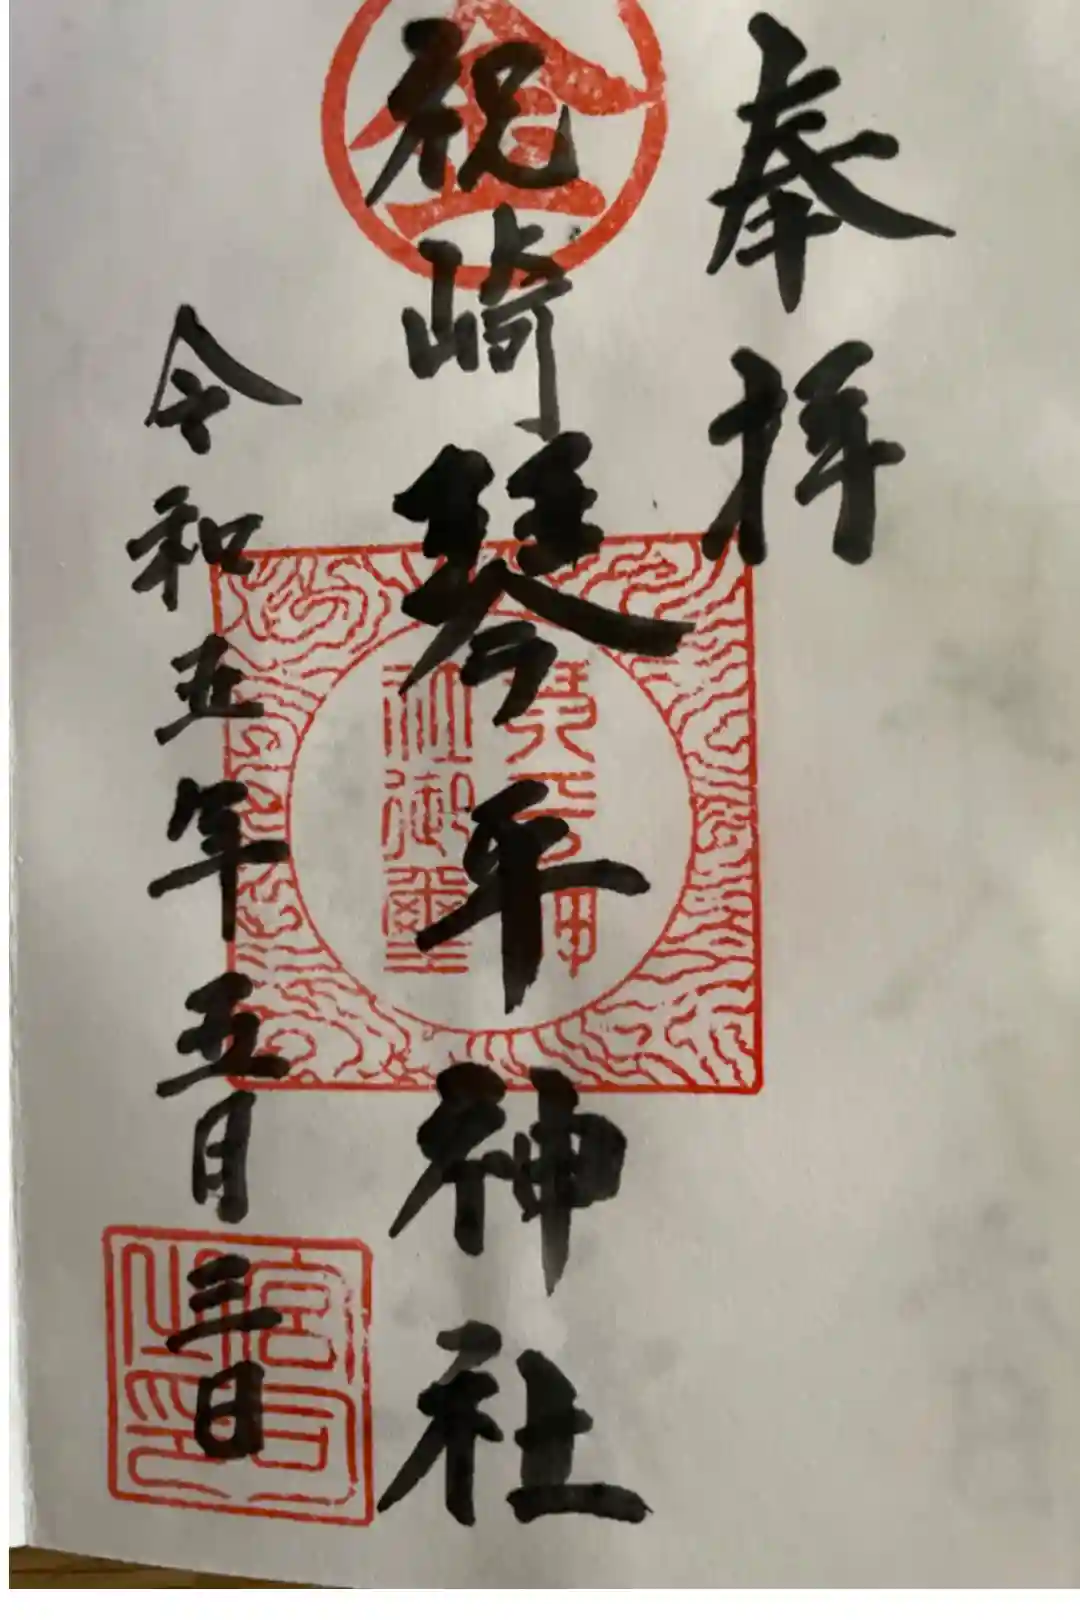 奉拝
祝崎琴平神社
令和五年五月三日
金
琴平神
社御璽
宮司
之印